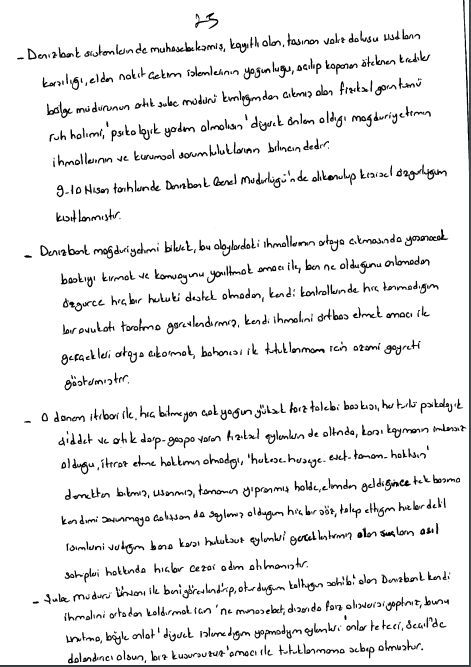 23
- Denizbank sistemlerinde muhasebeleşmiş, kayıtlı olan, taşınan valiz dolusu usd ların
karşılığı, elden nakit çekim işlemlerinin yoğunluğu, açılıp kapanan ötelenen krediler
bölge müdürünün artık şube müdürü kimliğimden çıkmış olan fiziksel görüntümü
ruh halimi, 'psikolojik yardım almalısın' diyerek önlem aldığı mağduriyetimin
ihmallerinin ve kurumsal sorumluluklarının bilincindedir.
9-10 Nisan tarihlerinde Denizbank Genel Müdürlüğü'nde alıkonulup kişisel özgürlüğüm
kısıtlanmıştır.
- Denizbank mağduriyetimi bilerek, bu olaylardaki ihmallerinin ortaya çıkmasında yaşanacak
baskıyı kırmak ve kamuoyunu yanıltmak amacı ile, ben ne olduğunu anlamadan
özgürce hiçbir hukuki destek almadan, kendi kontrollerinde hiç tanımadığım
bir avukatı tarafıma görevlendirmiş, kendi ihmalini örtbas etmek amacı ile
gerçekleri ortaya çıkarmak, bahanesi ile tutuklanmam için azami gayreti
göstermiştir.
- O dönem itibari ile, hiç bitmeyen çok yoğun yüksek faiz talebi baskısı, her türlü psikolojik
şiddet ve artık darp-gaspa varan fiziksel eylemlerin de altında, karşı koymanın imkansız
olduğu, itiraz etme hakkımın olmadığı, 'hukese-huseye-evet-tamam-haklısın'
demekten bıkmış, usanmış, tamamen yıpranmış halde, elimden geldiğince tek başıma
kendimi savunmaya çalışsam da söylemiş olduğum hiçbir söz, talep ettiğim hiçbir delil
isimlerini verdiğim bana karşı hukuksuz eylemleri gerçekleştirmiş olan suçların asıl
sahipleri hakkında hiçbir cezai adım atılmamıştır.
- Şube Müdürü ünvanı ile beni görevlendirip, oturduğum koltuğun sahibi olan Denizbank kendi
ihmalini ortadan kaldırmak için 'ne münasebet, dışarıda faiz alışverişi yaptınız, bunu
unutma, böyle anlat' diyerek işlemediğim yapmadığım eylemleri 'onlar tefeci, Seçil'de
dolandırıcı olsun, biz kusursuzuz' amacı ile tutuklanmama sebep olmuştur.